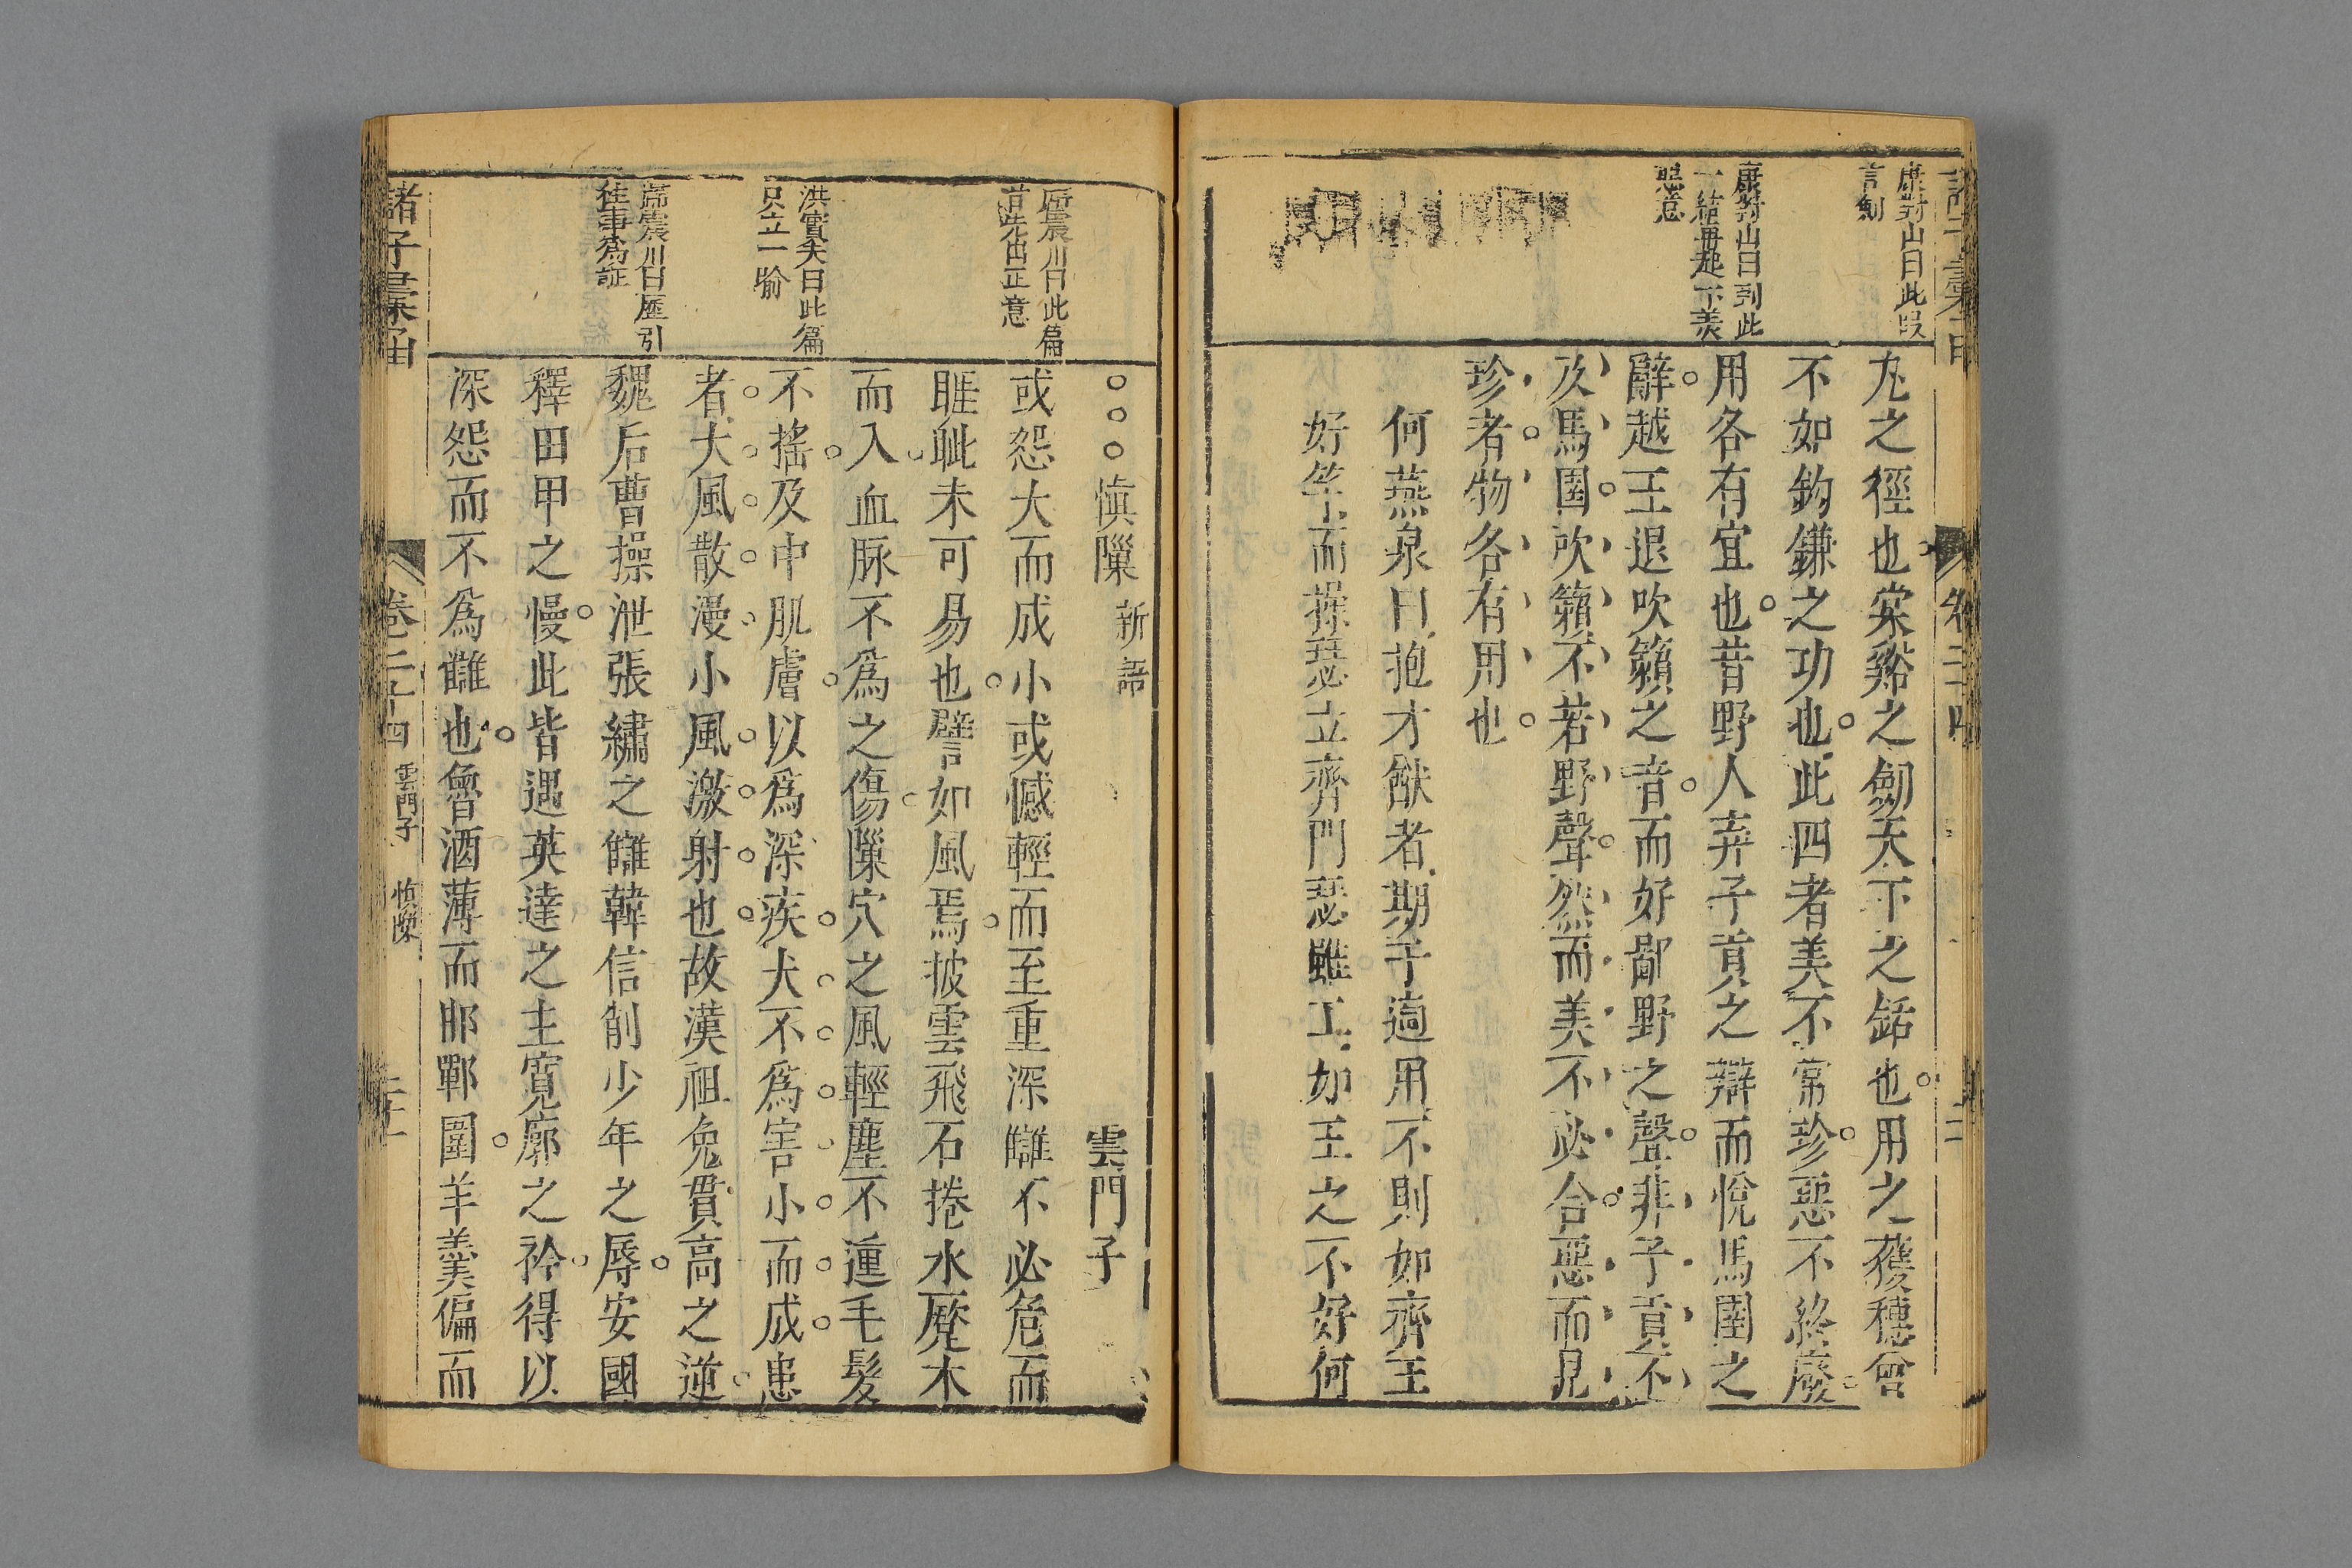 康對山曰此段
言劍
康對山曰到此
一結無起下羨
慧意
丸之徑也棠谿之劒天下之銛也用之穫穗曾
不如鈎鎌之功也此四者美不常珍惡不終廢
用各有宜也昔野人弃子貢之辯而悅馬圉之
辭越王退吹籟之音而好鄙野之聲非子貢不
及馬圉吹籟不若野聲然而美不必合惡而見
珍者物各有用也
何燕泉曰抱才猷者期于適用不則如齊王
好竽而操瑟立齊門瑟雖工如王之不好何
歸震川曰此篇
首先出正意
洪實夫曰此篇
只立一喻
歸震川曰歷引
往事爲証
慎隟 新語 雲門子
或怨大而成小或憾輕而至重深讎不必危而
睚眦未可易也譬如風焉披雲飛石捲水蹷木
而入血脉不爲之傷隟穴之風輕塵不運毛髮
不搖及中肌膚以爲深疾大不爲害小而成患
者大風散漫小風激射也故漢祖免貫高之逆
魏后曹操泄張繡之讎韓信削少年之辱安國
釋田甲之慢此皆遇英達之主寬廓之衿得以
深怨而不爲讎也魯酒薄而邯鄲圍羊羹偏而
諸子彙函 卷二十四 雲門子 慎隟